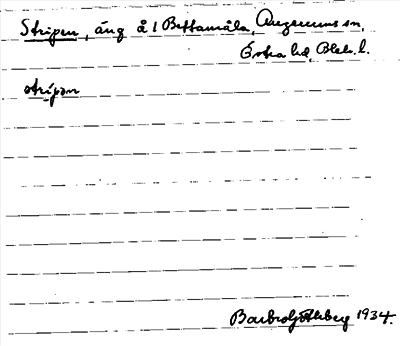 Stripen, äng å 1 Bettamåla, Augerums sn,
Östra hd, Blek. l.
stripən
Barbro Göthberg 1934.